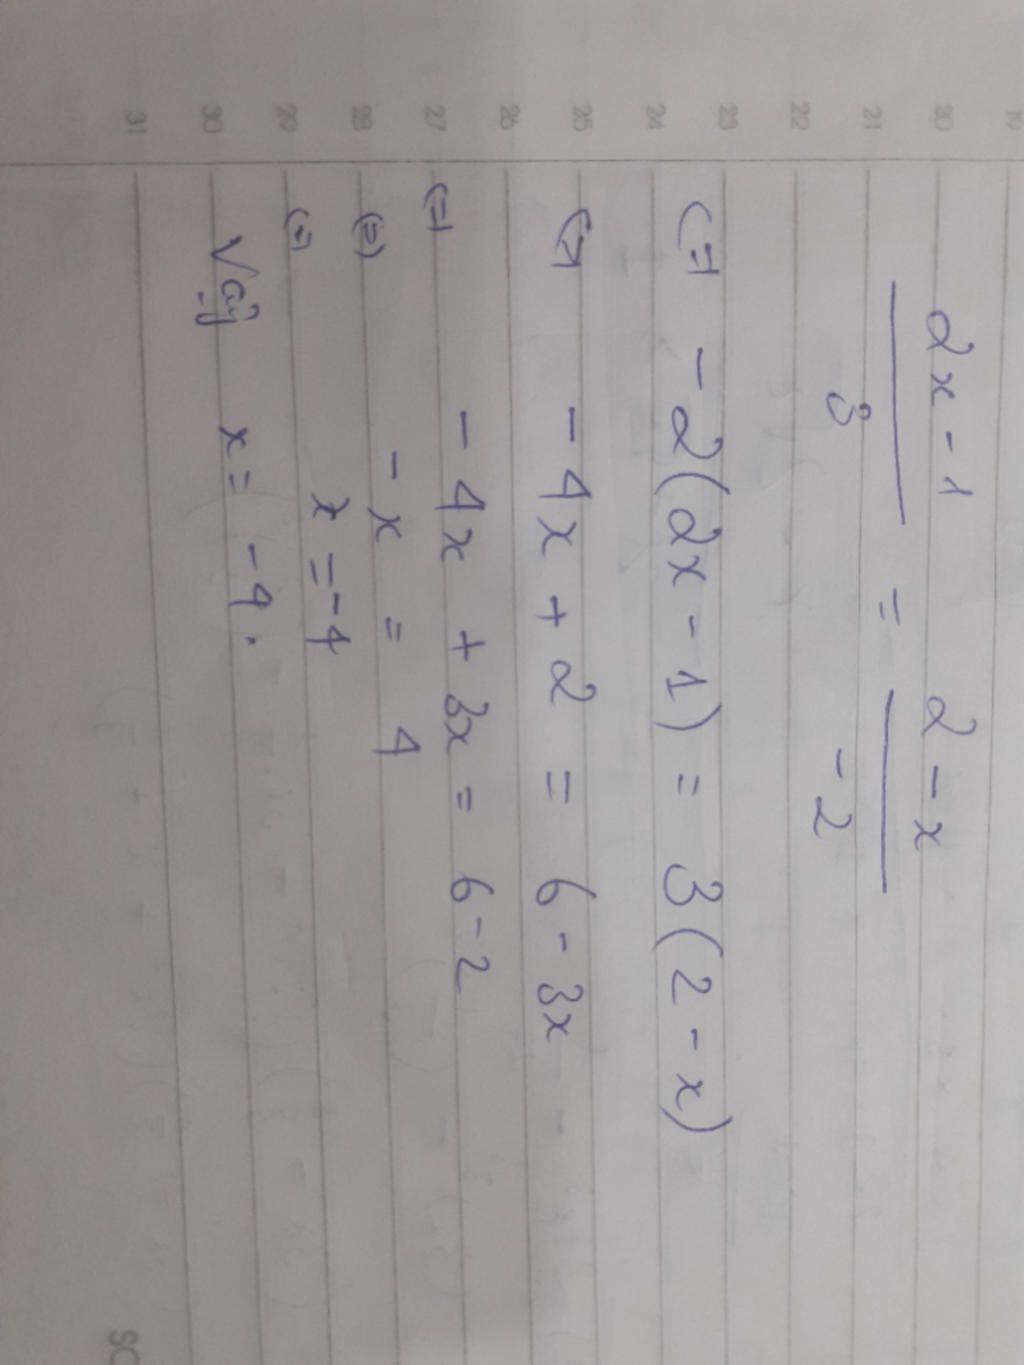 2x - 1 2 - x
= 
3 -2
(=) -2(2x - 1) = 3(2 - x)
(=) -4x + 2 = 6 - 3x
(=) -4x + 3x = 6 - 2
(=) -x = 4
(=) x = -4
Vậy x = -4.
19 20 21 22 23 24 25 26 27 28 29 30 31